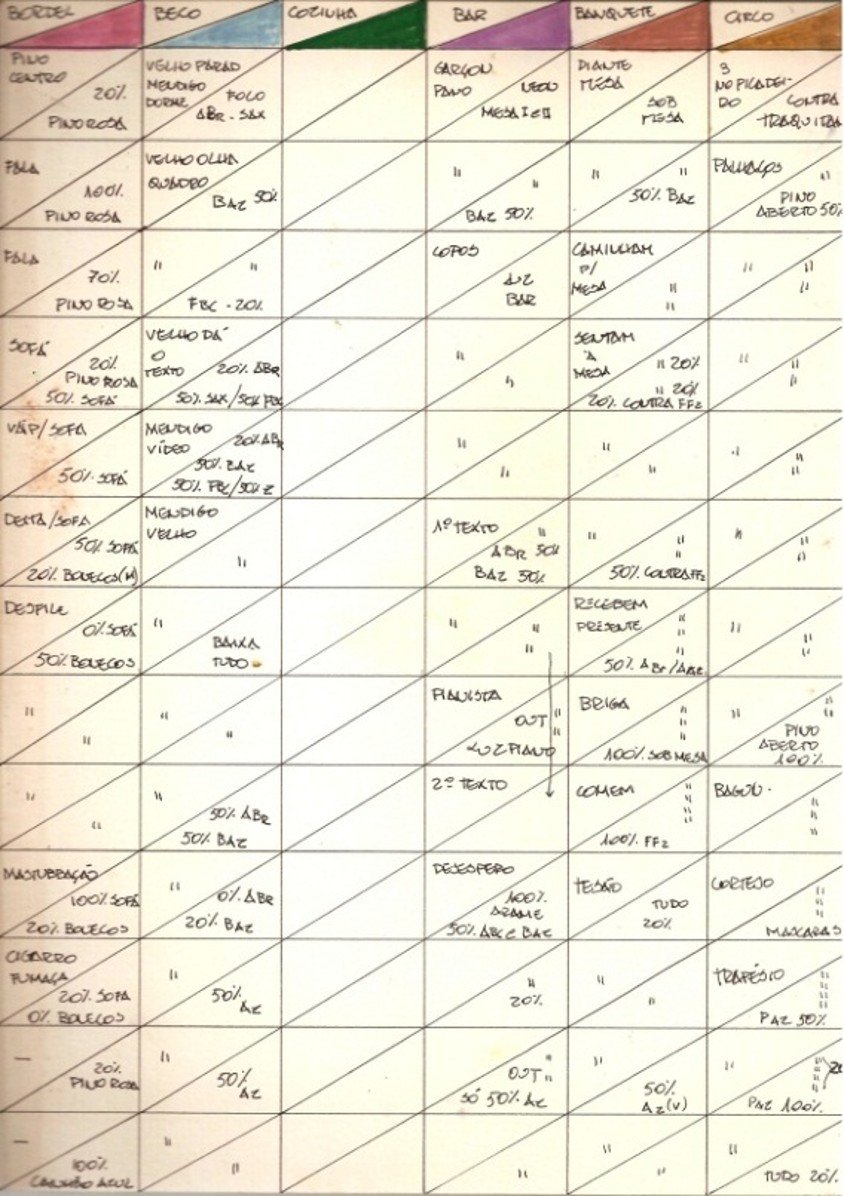 BORDEL
BECO
COZINHA
BAR
BANQUETE
CIRCO
PINO
CENTRO
20%
PINO ROSA
VELHO PARAD
MENDIGO
DORME
FOCO
ABR - SAX
GARÇON
PANO
NEON
MESA I e II
DIANTE
MESA
SOB
MESA
3
NO PICADEI-
RO
CONTRA
TRAQUITAN
FALA
100%
PINO ROSA
VELHO OLHA
QUADRO
BAZ 50%
"
"
BAZ 50%
"
"
50% BAZ
PALHAÇOS
"
PINO
ABERTO 50%
FALA
70%
PINO ROSA
"
"
FBC - 20%
COPOS
LUZ
BAR
CAMINHAM
P/
MESA
"
"
"
"
"
SOFÁ
20%
PINO ROSA
50% SOFÁ
VELHO DÁ
O
TEXTO
20% ABR
50% SAX / 50% FBC
"
"
SENTAM
À
MESA
" 20%
" 20%
20% CONTRA FF2
"
"
"
VÃO P/ SOFÁ
50% SOFÁ
MENDIGO
VÍDEO
20% ABR
50% BAZ
"
"
"
"
"
"
"
DEITA / SOFÁ
50% SOFÁ
20% BONECOS (M)
MENDIGO
VELHO
"
1º TEXTO
"
ABR 50%
BAZ 50%
"
"
"
50% CONTRA FF2
"
"
"
DESFILE
0% SOFÁ
50% BONECOS
"
BAIXA
TUDO
"
"
"
RECEBEM
PRESENTE
"
"
"
50% ABR / ABZ
"
"
"
"
"
"
"
PIANISTA
OUT "
"
LUZ PIANO
BRIGA
"
"
"
100% SOB MESA
"
"
"
PINO
ABERTO
100%
"
"
"
50% ABR
50% BAZ
2º TEXTO
COMEM
"
"
"
"
100% FF2
"
"
"
MASTURBAÇÃO
100% SOFÁ
20% BONECOS
"
0% ABR
20% BAZ
DESESPERO
100%
ARAME
50% ABR e BAZ
TESÃO
TUDO
20%
CORTEJO
"
"
"
MASCARAS
CIGARRO
FUMAÇA
20% SOFÁ
0% BONECOS
"
50%
AZ
"
20%
"
"
TRAPÉSIO
"
"
"
"
PAZ 50%
—
20%
PINO ROSA
"
50%
AZ
OUT "
"
SÓ 50% AZ
"
50%
AZ (V)
"
"
"
"
PAZ 100%
—
100%
CANHÃO AZUL
"
"
"
"
"
"
TUDO 20%